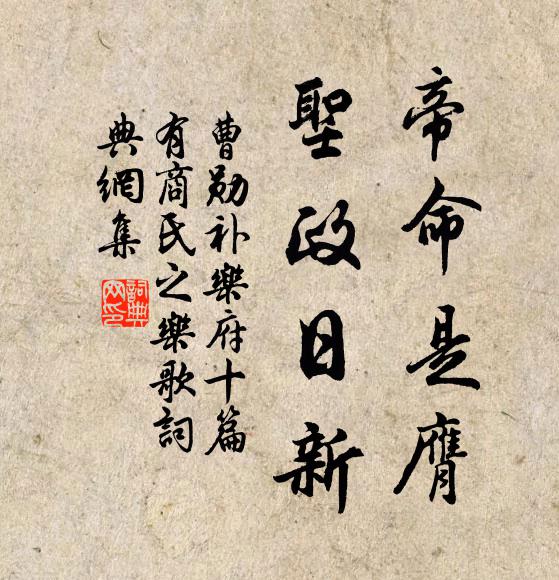 帝命是膺
聖政日新
曹勛补樂府十篇
有商氏之樂歌詞
典網集
詞典
网印